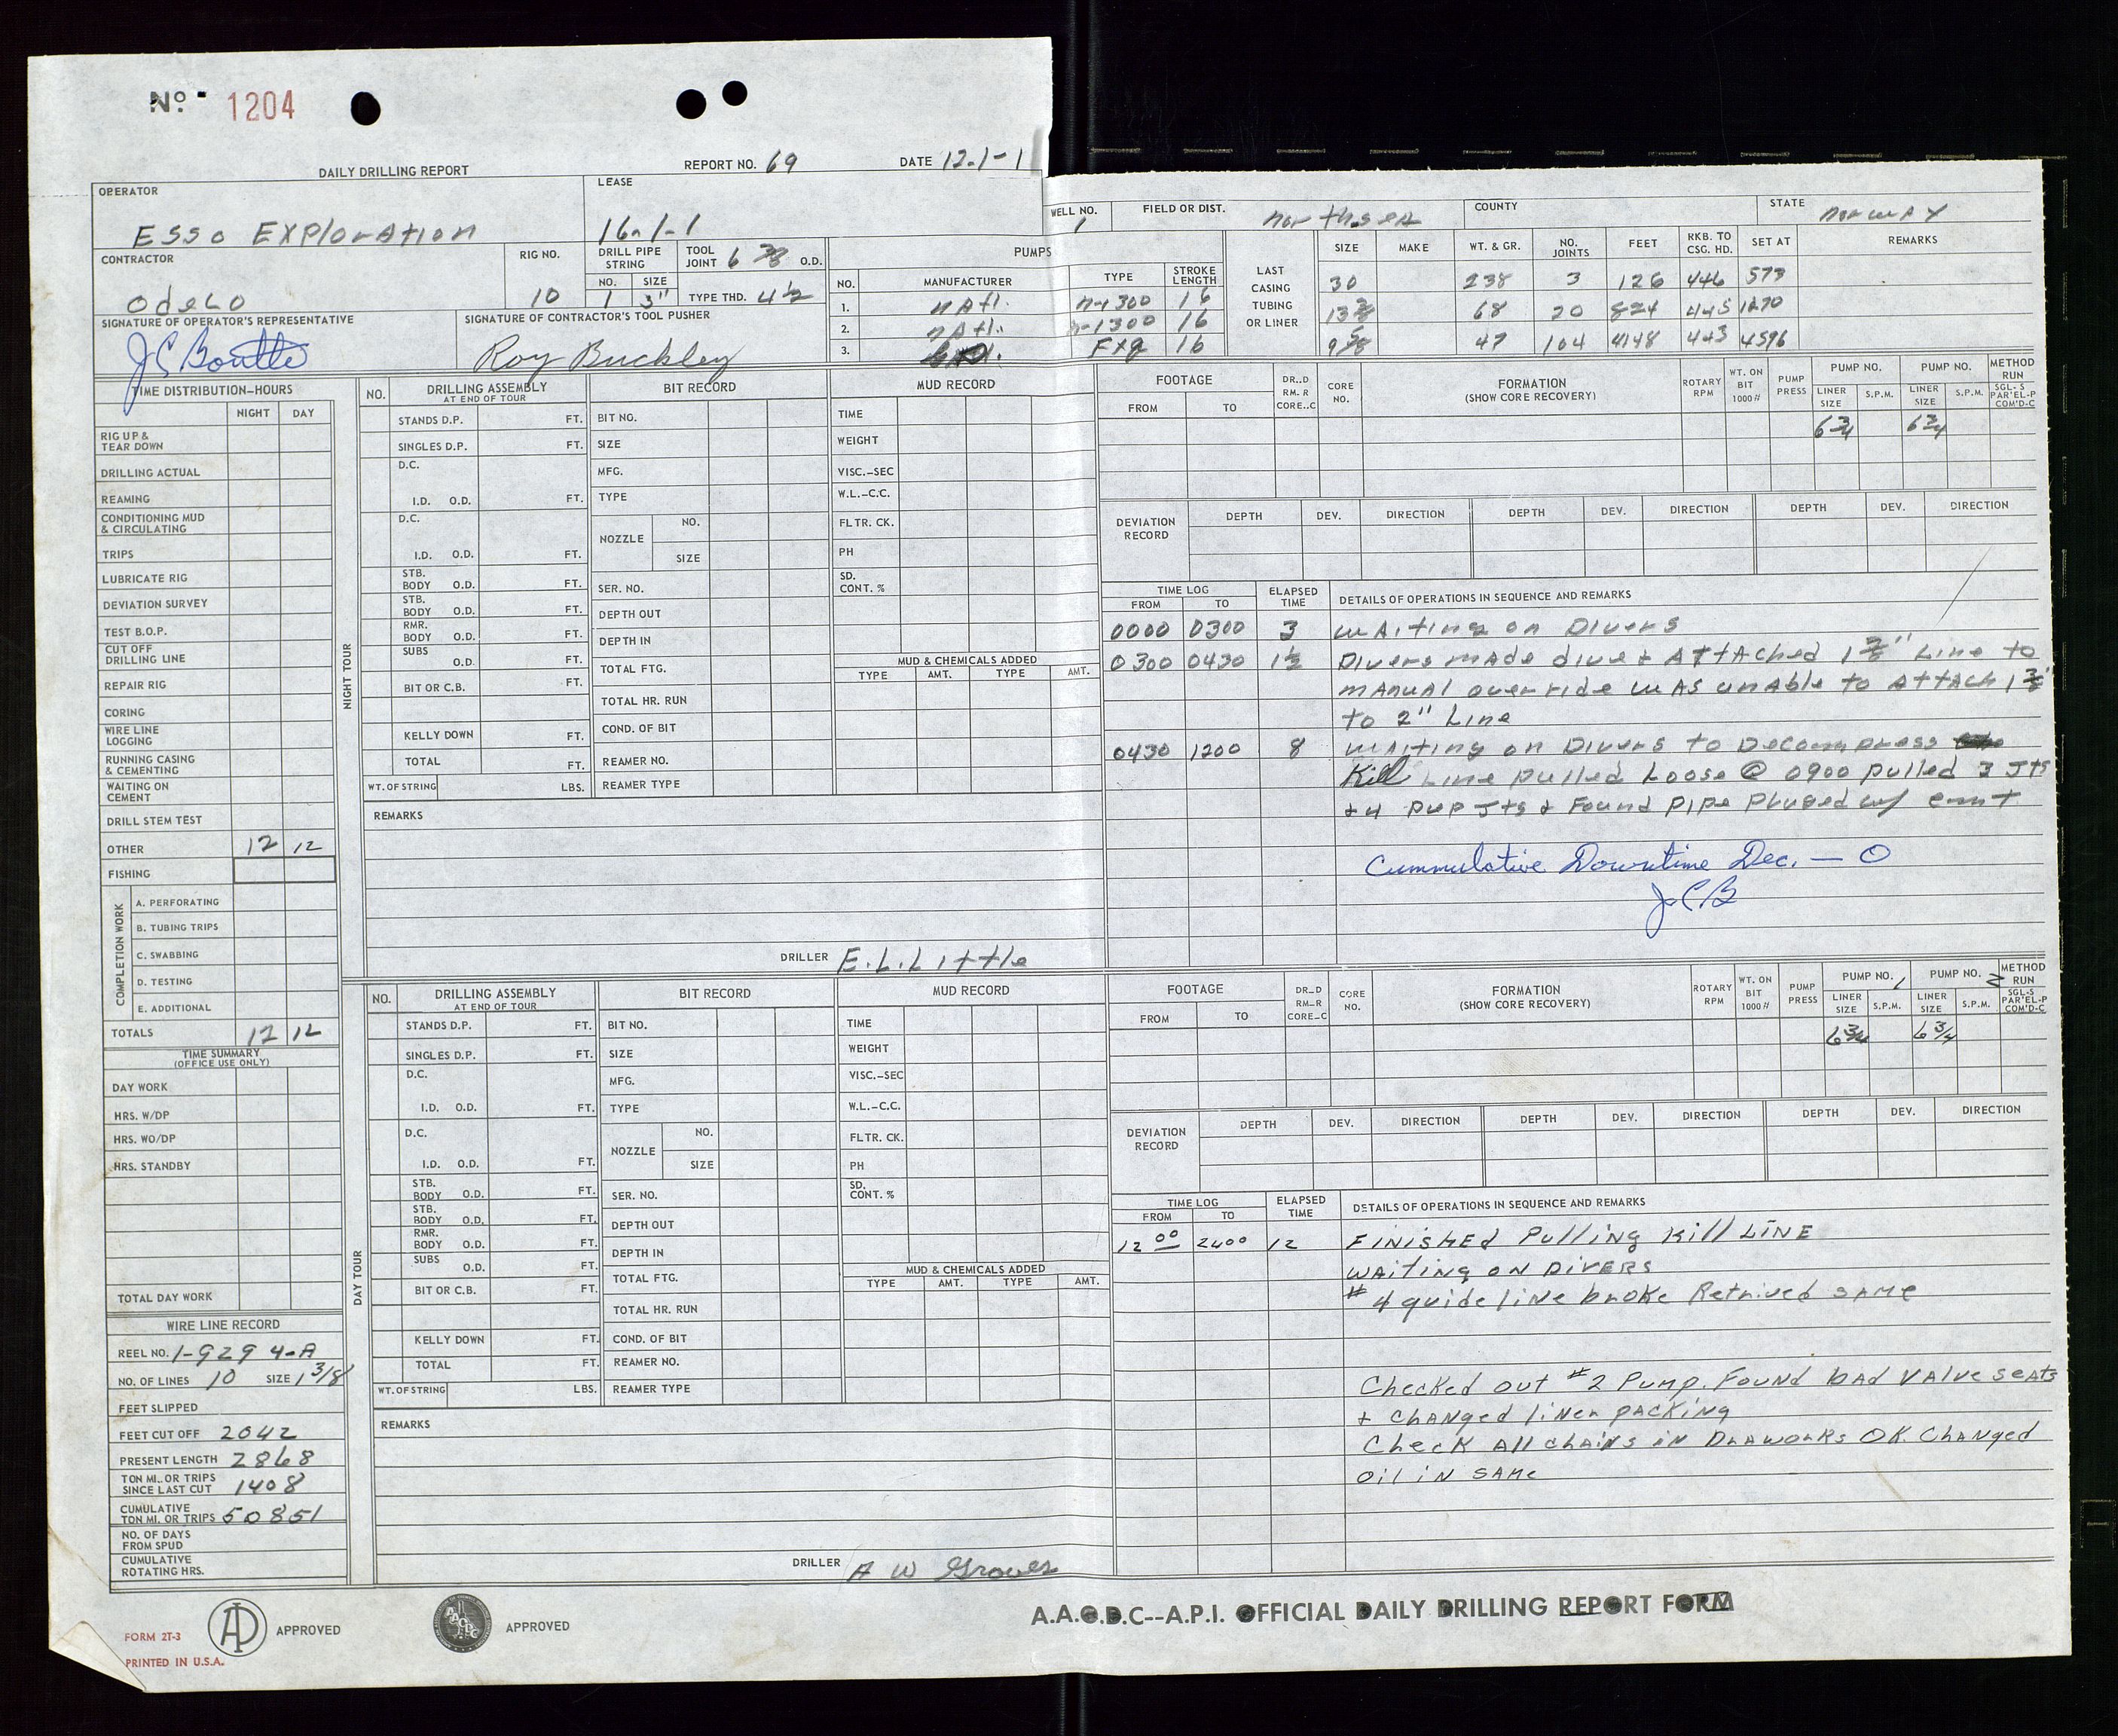 No. - 1204
DAILY DRILLING REPORT REPORT NO. 69 DATE 12-1-1
OPERATOR LEASE WELL NO. FIELD OR DIST. COUNTY STATE
Esso Exploration 16-1-1 1 north sea norway
CONTRACTOR RIG NO. DRILL PIPE STRING TOOL JOINT 6 3/8 O.D. PUMPS
NO. SIZE TYPE THD. 4 1/2
Odeco 10 1 5"
NO. MANUFACTURER TYPE STROKE LENGTH
1. natl. n-1300 16
2. natl. n-1300 16
3. FXQ 16
LAST CASING TUBING OR LINER
SIZE MAKE WT. & GR. NO. JOINTS FEET RKB. TO CSG. HD. SET AT REMARKS
30 238 3 126 446 573
13 3/8 68 20 824 445 1270
9 5/8 47 104 4148 443 4596
SIGNATURE OF OPERATOR'S REPRESENTATIVE SIGNATURE OF CONTRACTOR'S TOOL PUSHER
J C Boutte Roy Buckley
TIME DISTRIBUTION-HOURS
NIGHT DAY
RIG UP & TEAR DOWN
DRILLING ACTUAL
REAMING
CONDITIONING MUD & CIRCULATING
TRIPS
LUBRICATE RIG
DEVIATION SURVEY
TEST B.O.P.
CUT OFF DRILLING LINE
REPAIR RIG
CORING
WIRE LINE LOGGING
RUNNING CASING & CEMENTING
WAITING ON CEMENT
DRILL STEM TEST
OTHER 12 12
FISHING
COMPLETION WORK
A. PERFORATING
B. TUBING TRIPS
C. SWABBING
D. TESTING
E. ADDITIONAL
TOTALS 12 12
TIME SUMMARY
(OFFICE USE ONLY)
DAY WORK
HRS. W/DP
HRS. WO/DP
HRS. STANDBY
TOTAL DAY WORK
WIRE LINE RECORD
REEL NO. 1-9294-A
NO. OF LINES 10 SIZE 1 3/8
FEET SLIPPED
FEET CUT OFF 2042
PRESENT LENGTH 2868
TON MI. OR TRIPS SINCE LAST CUT 1408
CUMULATIVE TON MI. OR TRIPS 50851
NO. OF DAYS FROM SPUD
CUMULATIVE ROTATING HRS.
NIGHT TOUR
NO. DRILLING ASSEMBLY AT END OF TOUR
STANDS D.P. FT.
SINGLES D.P. FT.
D.C.
I.D. O.D. FT.
D.C.
I.D. O.D. FT.
STB. BODY O.D. FT.
STB. BODY O.D. FT.
RMR. BODY O.D. FT.
SUBS O.D. FT.
BIT OR C.B. FT.
KELLY DOWN FT.
TOTAL FT.
WT. OF STRING LBS.
BIT RECORD
BIT NO.
SIZE
MFG.
TYPE
NOZZLE NO.
SIZE
SER. NO.
DEPTH OUT
DEPTH IN
TOTAL FTG.
TOTAL HR. RUN
COND. OF BIT
REAMER NO.
REAMER TYPE
MUD RECORD
TIME
WEIGHT
VISC.-SEC
W.L.-C.C.
FLTR. CK.
PH
SD. CONT. %
MUD & CHEMICALS ADDED
TYPE AMT. TYPE AMT.
REMARKS
DRILLER E.L. Little
FOOTAGE DR..D RM. R CORE..C CORE NO. FORMATION (SHOW CORE RECOVERY) ROTARY RPM WT. ON BIT 1000 # PUMP PRESS PUMP NO. PUMP NO. METHOD RUN
FROM TO LINER SIZE S.P.M. LINER SIZE S.P.M. SGL-S PAR'EL-P COM'D-C
6 3/4 6 3/4
DEVIATION RECORD DEPTH DEV. DIRECTION DEPTH DEV. DIRECTION DEPTH DEV. DIRECTION
TIME LOG ELAPSED TIME DETAILS OF OPERATIONS IN SEQUENCE AND REMARKS
FROM TO
0000 0300 3 waiting on Divers
0300 0430 1 1/2 Divers made dive & attached 1 3/8" Line to
manual over ride was unable to attach 1 3/8"
to 2" Line
0430 1200 8 waiting on Divers to Decompress
Kill Line pulled Loose @ 0900 pulled 3 Jts
+ 4 pup Jts & Found pipe pluged w/ cmt
Cummulative Downtime Dec. — 0
JCB
DAY TOUR
NO. DRILLING ASSEMBLY AT END OF TOUR
STANDS D.P. FT.
SINGLES D.P. FT.
D.C.
I.D. O.D. FT.
D.C.
I.D. O.D. FT.
STB. BODY O.D. FT.
STB. BODY O.D. FT.
RMR. BODY O.D. FT.
SUBS O.D. FT.
BIT OR C.B. FT.
KELLY DOWN FT.
TOTAL FT.
WT. OF STRING LBS.
BIT RECORD
BIT NO.
SIZE
MFG.
TYPE
NOZZLE NO.
SIZE
SER. NO.
DEPTH OUT
DEPTH IN
TOTAL FTG.
TOTAL HR. RUN
COND. OF BIT
REAMER NO.
REAMER TYPE
MUD RECORD
TIME
WEIGHT
VISC.-SEC
W.L.-C.C.
FLTR. CK.
PH
SD. CONT. %
MUD & CHEMICALS ADDED
TYPE AMT. TYPE AMT.
REMARKS
DRILLER A W Groves
FOOTAGE DR-D RM-R CORE-C CORE NO. FORMATION (SHOW CORE RECOVERY) ROTARY RPM WT. ON BIT 1000 # PUMP PRESS PUMP NO. 1 PUMP NO. 2 METHOD RUN
FROM TO LINER SIZE S.P.M. LINER SIZE S.P.M. SGL-S PAR'EL-P COM'D-C
6 3/4 6 3/4
DEVIATION RECORD DEPTH DEV. DIRECTION DEPTH DEV. DIRECTION DEPTH DEV. DIRECTION
TIME LOG ELAPSED TIME DETAILS OF OPERATIONS IN SEQUENCE AND REMARKS
FROM TO
12 00 2400 12 Finished Pulling Kill Line
waiting on Divers
#4 guide line broke Retrived same
Checked out #2 Pump. Found bad valve seats
+ changed liner packing
Check all chains in Draworks OK. Changed
oil in same
FORM 2T-3
PRINTED IN U.S.A.
APPROVED APPROVED
A.A.O.D.C--A.P.I. OFFICIAL DAILY DRILLING REPORT FORM